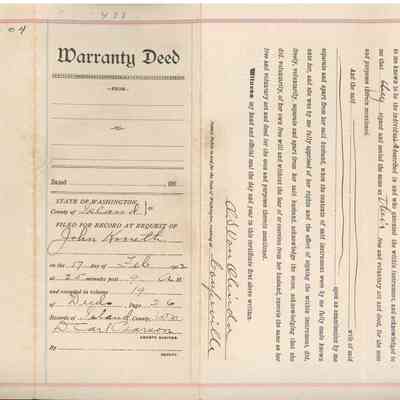 04
433
Warranty Deed
—FROM—
—TO—
Dated 190
STATE OF WASHINGTON,
County of Island } ss
FILED FOR RECORD AT REQUEST OF
John
on the 17 day of Feb 1902
at 25 minutes past 9 A M
and recorded in volume 19
of Deeds Page 26
Records of Island County, Wn
D. Carl Pearson
COUNTY AUDITOR.
By
DEPUTY.
to me known to be the individual s described in and who executed the within instrument, and acknowledged to
me that they signed and sealed the same as their free and voluntary act and deed, for the uses
and purposes therein mentioned.
And the said
wife of said
upon an examination by me
separate and apart from her said husband, when the contents of said instrument were by me fully made known
unto her, and she was by me fully apprised of her rights and the effect of signing the within instrument, did,
freely, voluntarily, separate and apart from her said husband, acknowledge the same, acknowledging that she
did, voluntarily, of her own free will and without the fear of or coercion from her husband, execute the same as her
free and voluntary act and deed for the uses and purposes therein mentioned.
Witness my hand and official seal the day and year in this certificate first above written.
Notary Public in and for the State of Washington, residing at Coupeville